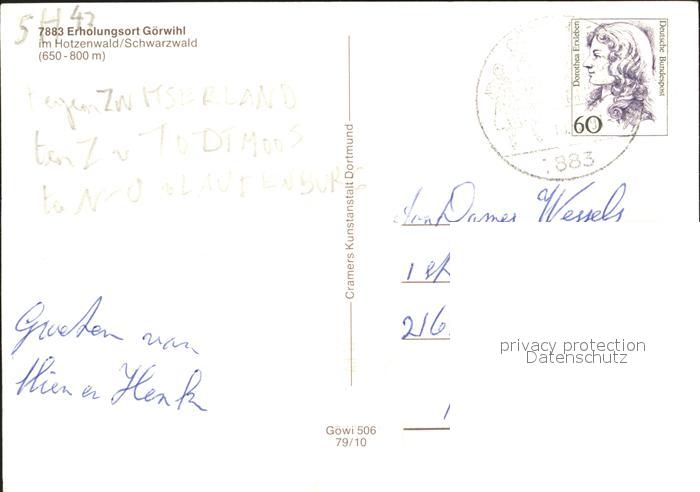 5H 42
7883 Erholungsort Görwihl
im Hotzenwald/Schwarzwald
(650-800 m)
tegen ZWITSERLAND
ten Z v TODTMOOS
ten N-O LAUFENBURG
Groeten van
Mien en Henk
Cramers Kunstanstalt Dortmund
Göwi 506
79/10
Dorothea Erxleben
Deutsche Bundespost
60
7883
Dames Wessels
1
216
privacy protection
Datenschutz
1